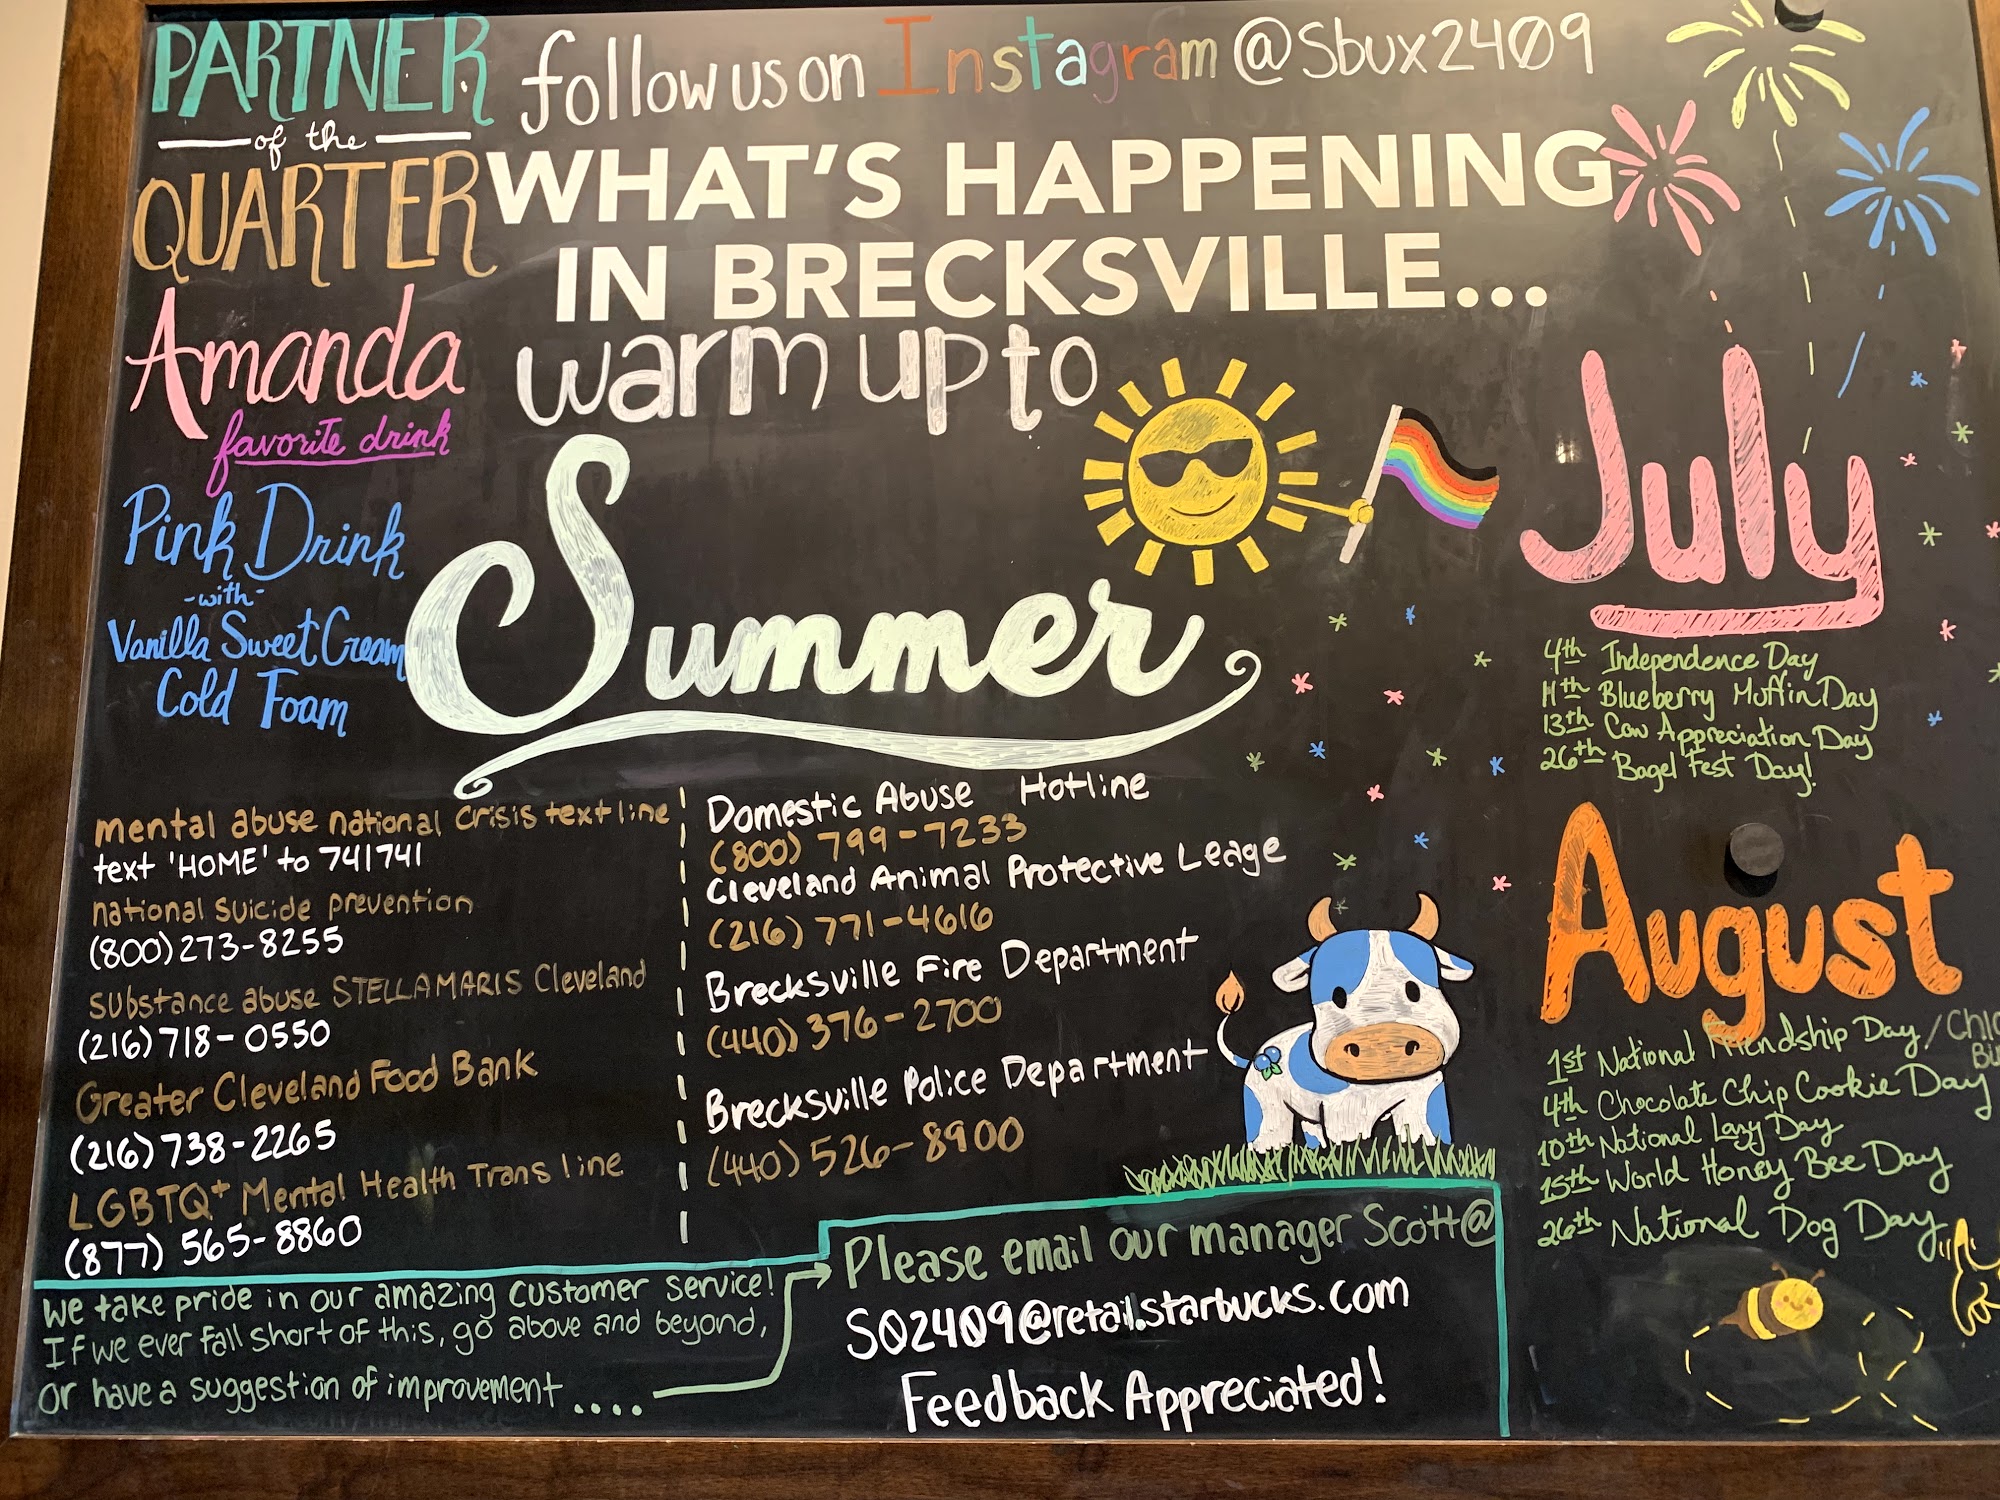 PARTNER
of the
QUARTER
Amanda
favorite drink
Pink Drink
-with-
Vanilla Sweet Cream
Cold Foam
follow us on Instagram @Sbux2409
WHAT'S HAPPENING
IN BRECKSVILLE...
warm up to
Summer
mental abuse national crisis text line
text 'HOME' to 741741
national suicide prevention
(800) 273-8255
substance abuse STELLA MARIS Cleveland
(216) 718-0550
Greater Cleveland Food Bank
(216) 738-2265
LGBTQ+ Mental Health Trans line
(877) 565-8860
Domestic Abuse Hotline
(800) 799-7233
Cleveland Animal Protective Leage
(216) 771-4616
Brecksville Fire Department
(440) 376-2700
Brecksville Police Department
(440) 526-8900
We take pride in our amazing customer service!
If we ever fall short of this, go above and beyond,
or have a suggestion of improvement ....
Please email our manager Scott@
S02409@retail.starbucks.com
Feedback Appreciated!
July
4th Independence Day
11th Blueberry Muffin Day
13th Cow Appreciation Day
26th Bagel Fest Day!
August
1st National Friendship Day /
4th Chocolate Chip Cookie Day
10th National Lazy Day
15th World Honey Bee Day
26th National Dog Day